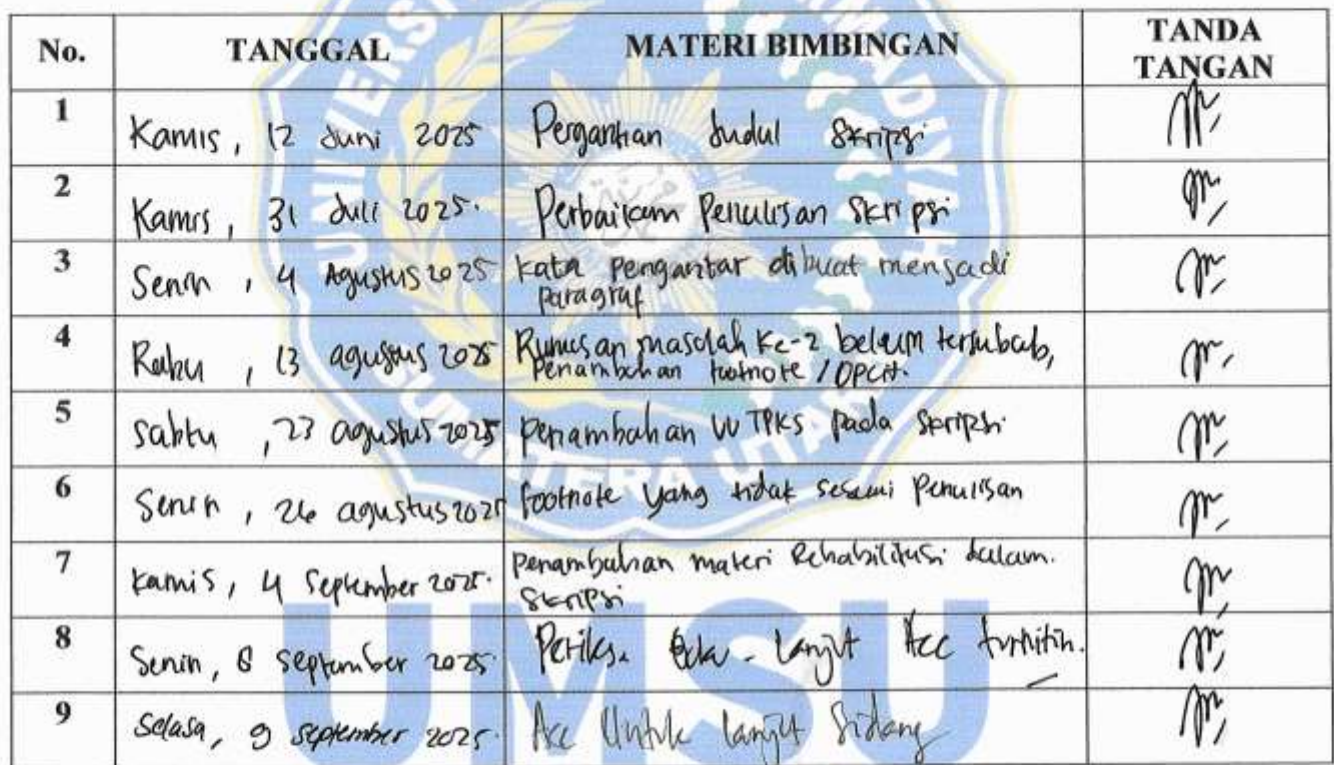 No. TANGGAL MATERI BIMBINGAN TANDA
TANGAN
1 Kamis, 12 Juni 2025 Pergantian Judul Skripsi
2 Kamis, 31 Juli 2025. Perbaikan Penulisan Skripsi
3 Senin, 4 Agustus 2025 Kata pengantar dibuat menjadi
paragraf
4 Rabu, 13 agustus 2025 Rumusan masalah Ke-2 belum tersubab,
Penambahan footnote / OPCit.
5 Sabtu, 23 agustus 2025 Penambahan UU TPKS pada Skripsi
6 Senin, 26 agustus 2025 footnote yang tidak sesuai Penulisan
7 Kamis, 4 September 2025. Penambahan materi Rehabilitasi dalam.
Skripsi
8 Senin, 8 September 2025 Periksa Buku - Lanjut Acc turnitin.
9 Selasa, 9 September 2025. Acc Untuk Lanjut Sidang
SUMATERA UTARA
UMSU